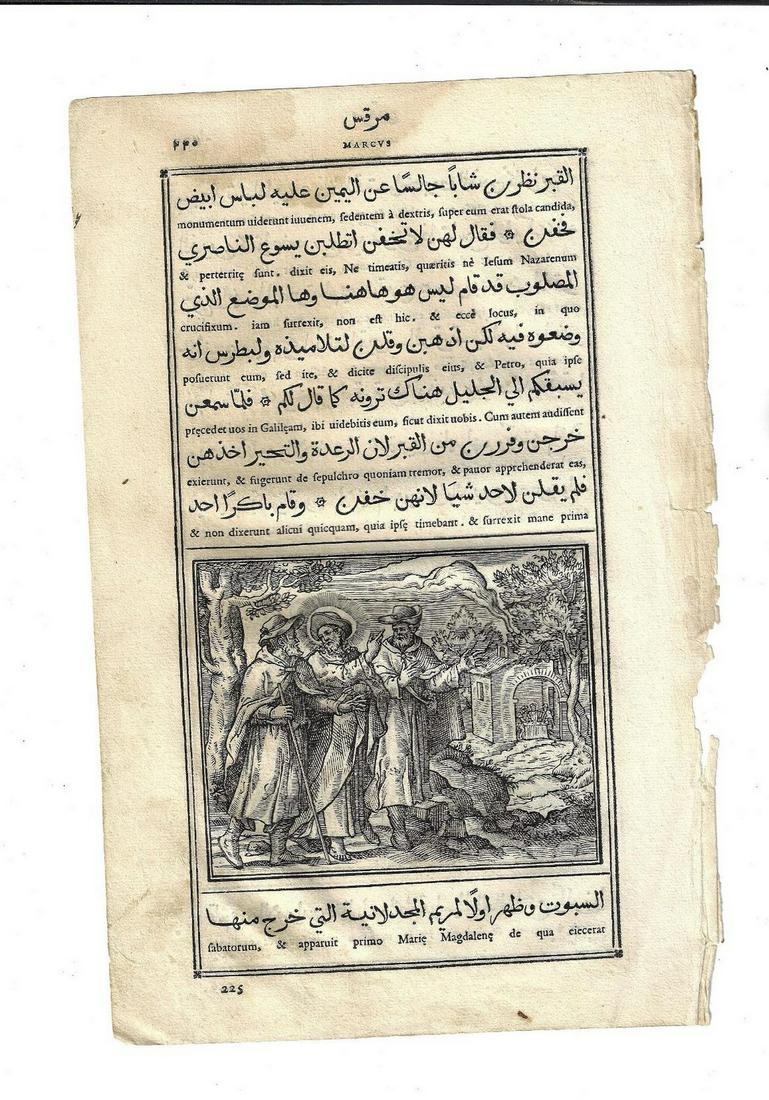 مرقس
٢٢٥
MARCVS
القبر نظرن شاباً جالسًا عن اليمين عليه لباس ابيض
monumentum uiderunt iuuenem, sedentem à dextris, super eum erat stola candida,
فخفن ۞ فقال لهن لا تخفن اتطلبن يسوع الناصري
& perterritę sunt. dixit eis, Ne timeatis, quæritis nè Iesum Nazarenum
المصلوب قد قام ليس هو هاهنا وها الموضع الذي
crucifixum. iam surrexit, non est hic. & eccè locus, in quo
وضعوه فيه لكن اذهبن وقلن لتلاميذه ولبطرس انه
posuerunt eum, sed ite, & dicite discipulis eius, & Petro, quia ipse
يسبقكم الي الجليل هناك ترونه كما قال لكم ۞ فلمّا سمعن
pręcedet uos in Galilęam, ibi uidebitis eum, sicut dixit uobis. Cum autem audissent
خرجن وفررن من القبر لان الرعدة والتحير اخذهن
exierunt, & fugerunt de sepulchro quoniam tremor, & pauor apprehenderat eas,
فلم يقلن لاحد شيَا لانهن خفن ۞ وقام باكرًا احد
& non dixerunt alicui quicquam, quia ipsę timebant. & surrexit mane prima
السبوت وظهر اولًا لمريم المجدلانية التي خرج منها
sabatorum, & apparuit primo Marię Magdalenę de qua eiecerat
225